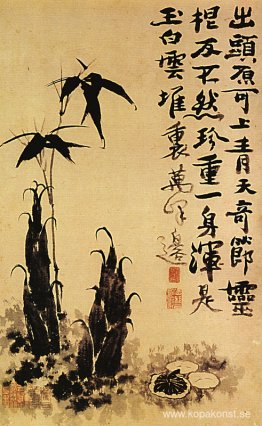 出頭原可上青天奇節靈
根反不然珍重一身渾是
玉白雲堆裏萬峯邊
www.kopakonst.se